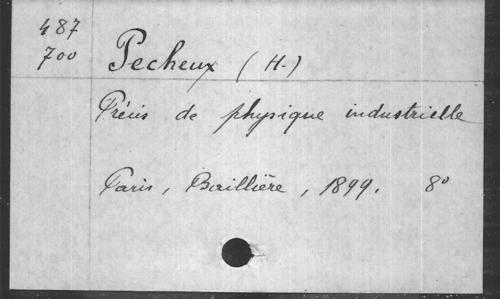 487
700
Pecheux (H.)
Précis de physique industrielle
Paris, Baillière, 1899. 8°